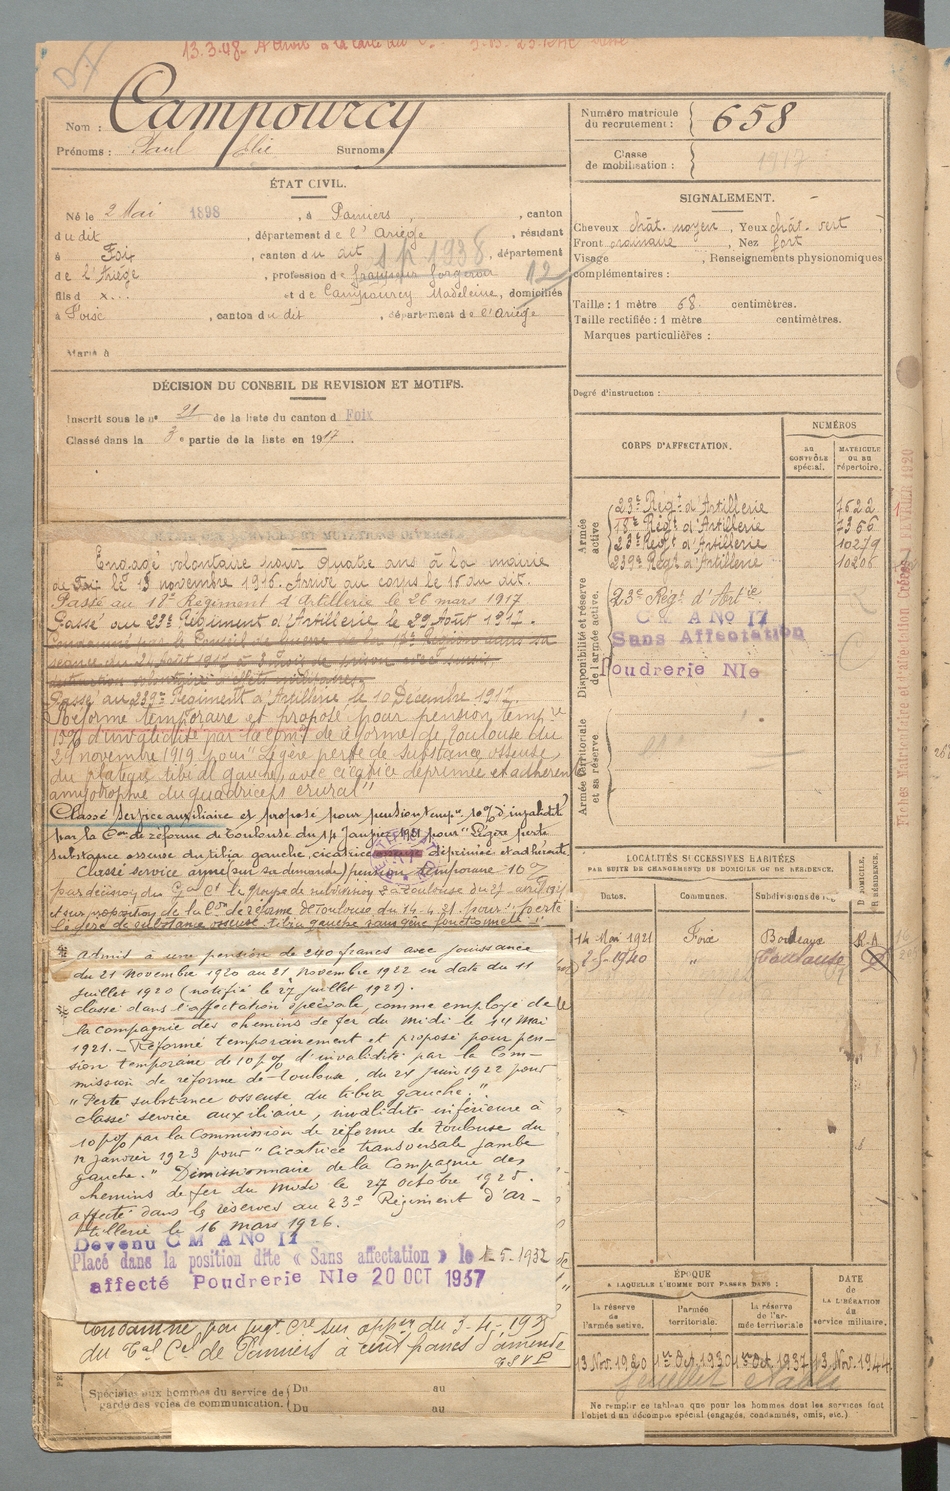 13.3.48.
Campourcy
Nom :
Prénoms : Paul Elie Surnoms :
Numéro matricule
du recrutement : 658
Classe
de mobilisation : 1917
ÉTAT CIVIL.
Né le 2 Mai 1898, à Pamiers, canton
du dit, département de l'Ariège, résidant
à Foix, canton du dit, département
de l'Ariège, profession de forgeron
fils d x... et de Campourcy Madeleine, domiciliés
à Foix, canton du dit, département de l'Ariège
Marié à
SIGNALEMENT.
Cheveux chât. moyen, Yeux chât. vert
Front ordinaire, Nez fort
Visage , Renseignements physionomiques
complémentaires :
Taille : 1 mètre 68. centimètres.
Taille rectifiée : 1 mètre centimètres.
Marques particulières :
Degré d'instruction :
DÉCISION DU CONSEIL DE REVISION ET MOTIFS.
Inscrit sous le n° 21 de la liste du canton d Foix
Classé dans la 3e partie de la liste en 1917.
CORPS D'AFFECTATION.
NUMÉROS
AU CONTRÔLE spécial.
MATRICULE OU AU répertoire.
Armée active
23e Régt d'Artillerie 7622
18e Régt d'Artillerie 7366
23e Régt d'Artillerie 10279
239e Régt d'Artillerie 10206
Disponibilité et réserve de l'armée active.
23e Rég. d'Artie
C M A No 17
Sans Affectation
Poudrerie Nle
Armée territoriale et sa réserve
Fiches Matriculaire et d'affectation Créées FÉVRIER 1920
Engagé volontaire pour quatre ans à la mairie
de Foix le 13 novembre 1916. Arrivé au corps le 15 du dit.
Passé au 18e Régiment d'Artillerie le 26 mars 1917
Passé au 23e Régiment d'Artillerie le 29 Août 1917.
Condamné par le Conseil de Guerre de la 18e Région dans sa
séance du 24 août 1917 à 2 mois de prison avec sursis
destruction volontaire d'effets militaires
Passé au 239e Régiment d'Artillerie le 10 Décembre 1917.
Réformé temporaire et proposé pour pension tempre
15% d'invalidité par la Comon de réforme de Toulouse du
29 novembre 1919 pour "Légère perte de substance osseuse
du plateau tibial gauche, avec cicatrice déprimée et adhérente
amyotrophie du quadriceps crural"
Classé service auxiliaire et proposé pour pension tempre 10% d'invalidité
par la Con de réforme de Toulouse du 14 Janvier 1921 pour "Légère perte
substance osseuse du tibia gauche, cicatrice déprimée et adhérente
Classé service armé (sur sa demande) pension temporaire 10%
par décision du Gal Ct le groupe de subdivision de Toulouse du 27 avril 1921
et sur proposition de la Con de réforme de Toulouse du 14-4-21. pour : perte
légère de substance osseuse tibia gauche sans gêne fonctionnelle
Admis à une pension de 240 francs avec jouissance
du 21 Novembre 1920 au 21 Novembre 1922 en date du 11
Juillet 1920 (notifié le 27 juillet 1921).
Classé dans l'affectation spéciale, comme employé de
la Compagnie des chemins de fer du Midi le 14 Mai
1921. - Réformé temporairement et proposé pour pen-
sion temporaire de 10 p% d'invalidité par la Com-
mission de réforme de Toulouse, du 24 juin 1922 pour
"Perte substance osseuse du tibia gauche."
classé service auxiliaire, invalidité inférieure à
10 p% par la Commission de réforme de Toulouse du
12 janvier 1923 pour "Cicatrice transversale jambe
gauche." Démissionnaire de la Compagnie des
chemins de fer du Midi le 27 octobre 1925.
affecté dans la réserves au 23e Régiment d'Ar-
tillerie le 16 mars 1926.
Devenu C M A No 17
Placé dans la position dite « Sans affectation » le 1-5-1932
affecté Poudrerie Nle 20 OCT 1937
Condamné par jugt cre sur opp du 3-4-193
du Cal Cel de Pamiers à cent francs d'amende
T S V P
LOCALITÉS SUCCESSIVES HABITÉES
PAR SUITE DE CHANGEMENTS DE DOMICILE OU DE RÉSIDENCE.
Dates. Communes. Subdivisions de
14 Mai 1921 Foix Bordeaux R.
1940 " Toulouse D
Spéciales aux hommes du service de
garde des voies de communication.
Du au
Du au
ÉPOQUE
A LAQUELLE L'HOMME DOIT PASSER DANS :
la réserve de l'armée active.
l'armée territoriale.
la réserve de l'armée territoriale
DATE DE LA LIBÉRATION du service militaire.
13 Nov. 1920 1er Oct. 1930 1er Oct. 1937 13 Nov. 1944
Ne remplir ce tableau que pour les hommes dont les services font
l'objet d'un décompte spécial (engagés, condamnés, omis, etc.)